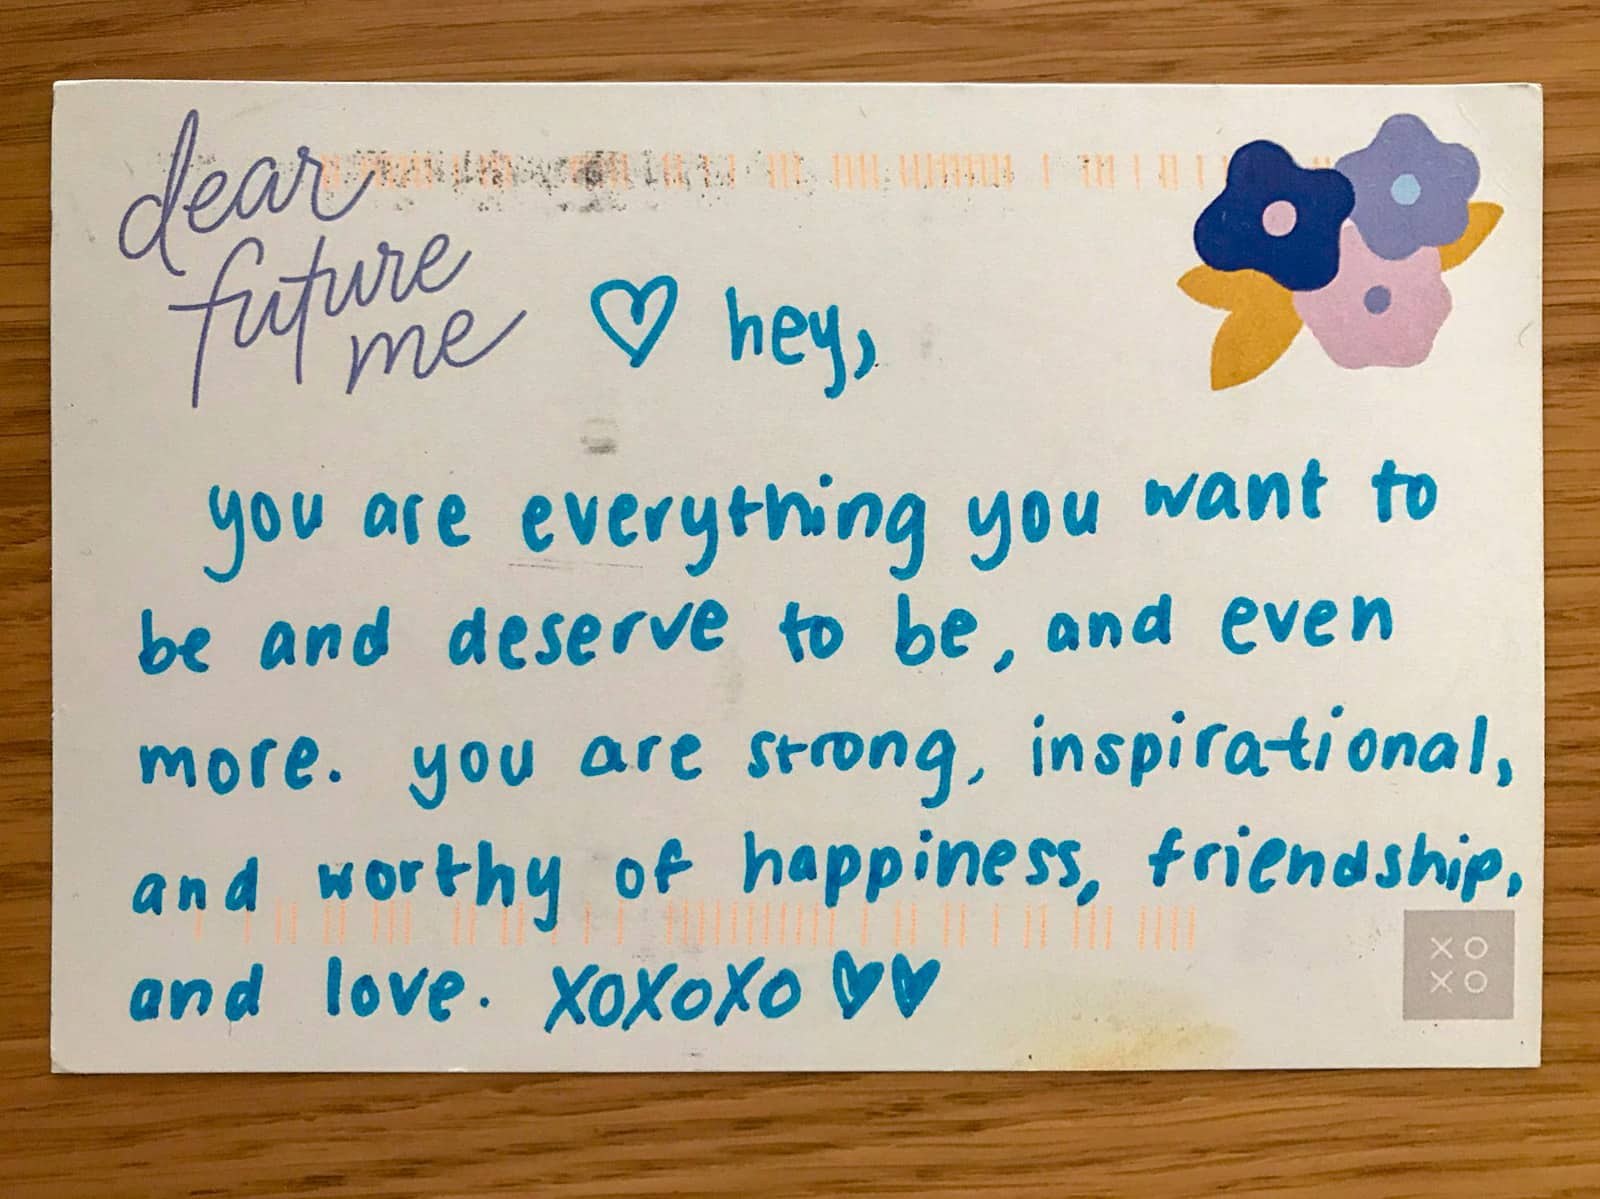 dear
future
me
♡ hey,
you are everything you want to
be and deserve to be, and even
more. you are strong, inspirational,
and worthy of happiness, friendship,
and love. xoxoxo ♥♥
XO
XO